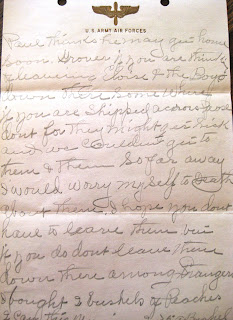 U.S. ARMY AIR FORCES
Paul thinks he may get home
soon. Grover if you are thinking
leaveing Eloise & the Boys
down there some where
if you are shipped across
dont for they might get sick
and we couldn't get to
them & them so far away
I would worry my self to death
about them. I hope you dont
have to leave them but
if you do dont leave them
down there among strangers
I bought 3 bushels of Peaches